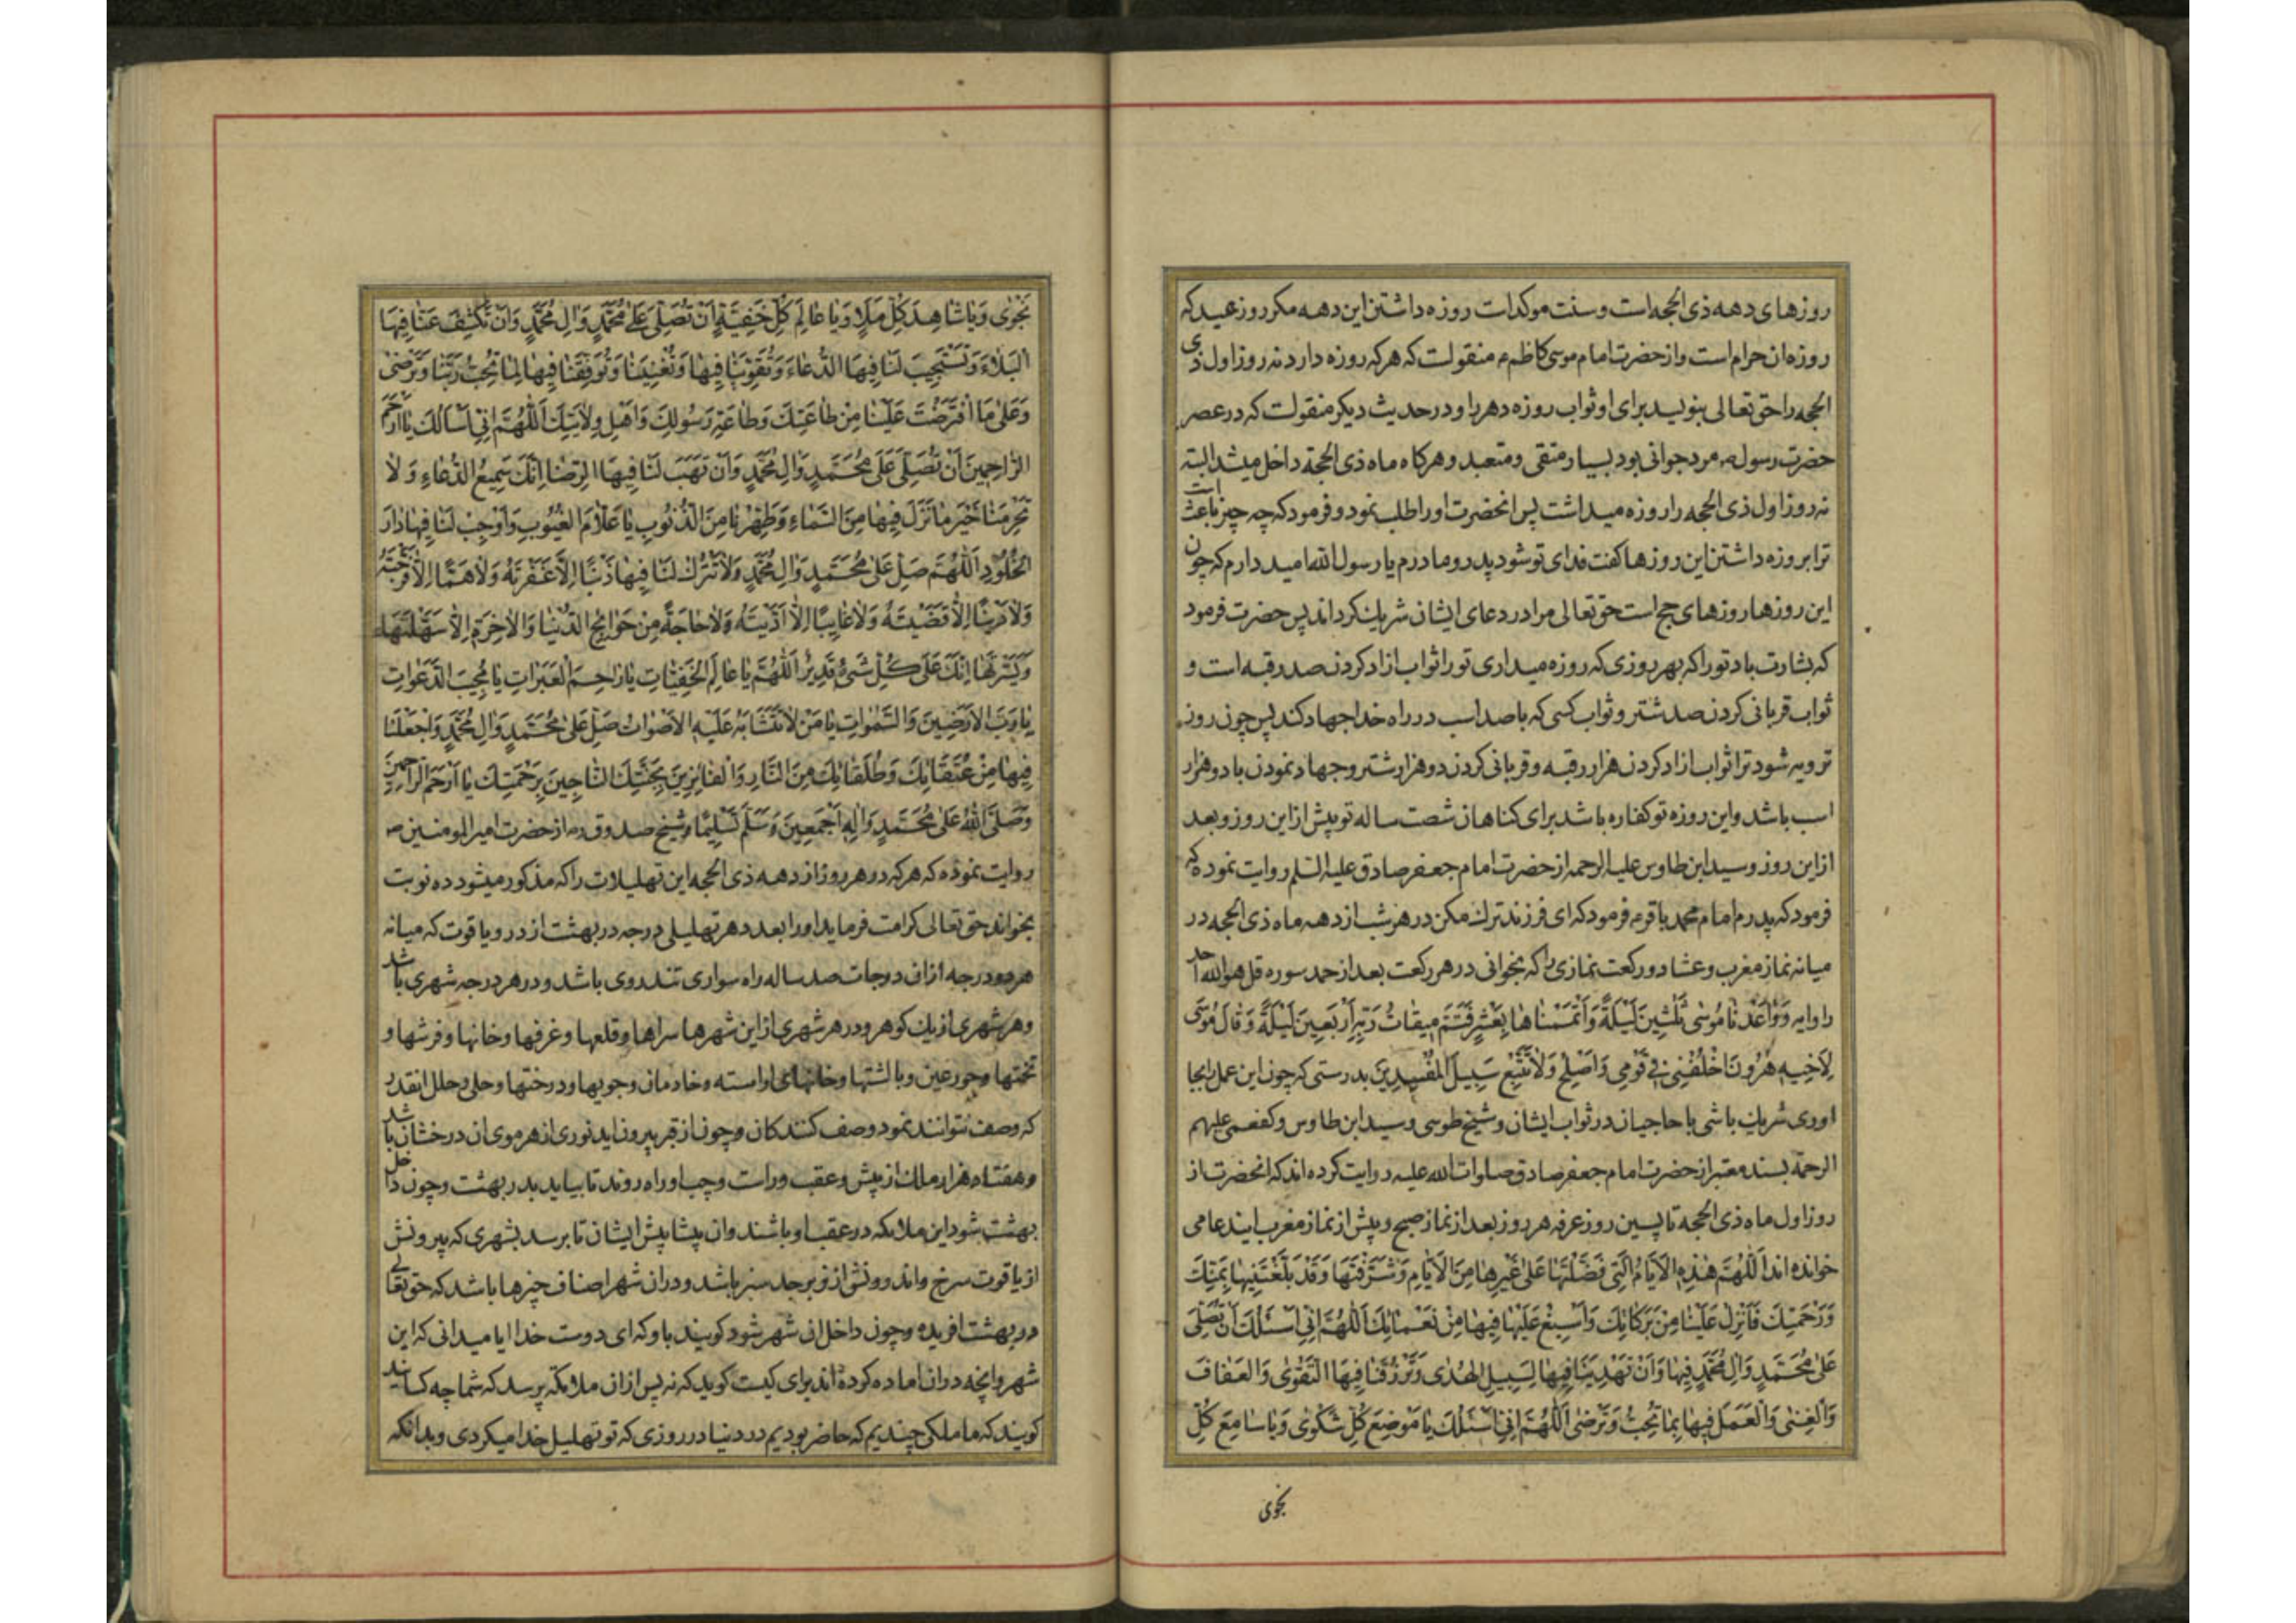 روزهای دهه ذی الحجه است و سنت موکداست روزه داشتن این دهه مکر روز عید که
روزه ان حرام است و از حضرت امام موسی کاظم ع منقولست که هر که روزه دارد نه روز اول ذی
الحجه را حق تعالی بنویسد برای او ثواب روزه دهر را و در حدیث دیکر منقولست که در عصر
حضرت رسول ص مرد جوانی بود بسیار متقی و متعبد و هرکاه ماه ذی الحجة داخل میشد البته
نه روز اول ذی الحجه را روزه میداشت پس انحضرت او را طلب نمود و فرمود که چه چیز باعث است
ترا بروزه داشتن این روزها کفت فدای تو شود پدر و مادرم یا رسول الله امید دارم که چون
این روزها روزهای حج است حق تعالی مرا در دعای ایشان شریک کرداند پس حضرت فرمود
که بشارت باد تو را که بهر روزی که روزه میداری تو را ثواب ازاد کردن صد رقبه است و
ثواب قربانی کردن صد شتر و ثواب کسی که با صد اسب در راه خدا جهاد کند پس چون روز
ترویه شود ترا ثواب ازاد کردن هزار رقبه و قربانی کردن دو هزار شتر و جهاد نمودن با دو هزار
اسب باشد و این روزه تو کفاره باشد برای کناهان شصت ساله تو پیش از این روز و بعد
از این روز و سید ابن طاوس علیه الرحمه از حضرت امام جعفر صادق علیه السلم روایت نموده که
فرمود که پدرم امام محمد باقر ع فرمود که ای فرزند ترک مکن در هر شب از دهه ماه ذی الحجه در
میانه نماز مغرب و عشا دو رکعت نمازی را که بخوانی در هر رکعت بعد از حمد سوره قل هو الله احد
را و ایه وَوٰاعَدْنٰا مُوسٰی ثَلٰثِینَ لَیْلَةً وَاَتْمَمْنٰاهٰا بِعَشْرٍ فَتَمَّ مِیقٰاتُ رَبِّهِ اَرْبَعِینَ لَیْلَةً وَقٰالَ مُوسٰی
لِاَخِیهِ هٰرُونَ اخْلُفْنِی فِی قَوْمِی وَاَصْلِحْ وَلٰا تَتَّبِعْ سَبِیلَ الْمُفْسِدِینَ بدرستی که چون این عمل را بجا
اوری شریک باشی با حاجیان در ثواب ایشان و شیخ طوسی و سید ابن طاوس و کفعمی علیهم
الرحمة بسند معتبر از حضرت امام جعفر صادق صلوات الله علیه روایت کرده اند که انحضرت از
روز اول ماه ذی الحجه تا پسین روز عرفه هر روز بعد از نماز صبح و پیش از نماز مغرب ایندعا می
خوانده اند اَللّٰهُمَّ هٰذِهِ الْاَیّٰامُ الَّتِی فَضَّلْتَهٰا عَلٰی غَیْرِهٰا مِنَ الْاَیّٰامِ وَشَرَّفْتَهٰا وَقَدْ بَلَّغْتَنِیهٰا بِمَنِّکَ
وَرَحْمَتِکَ فَاَنْزِلْ عَلَیْنٰا مِنْ بَرَکٰاتِکَ وَاَسْبِغْ عَلَیْنٰا فِیهٰا مِنْ نَعْمٰائِکَ اَللّٰهُمَّ اِنِّی اَسْئَلُکَ اَنْ تُصَلِّیَ
عَلٰی مُحَمَّدٍ وَاٰلِ مُحَمَّدٍ فِیهٰا وَاَنْ تَهْدِیَنٰا فِیهٰا لِسَبِیلِ الْهُدٰی وَتَرْزُقَنٰا فِیهَا التَّقْوٰی وَالْعَفٰافَ
وَالْغِنٰی وَالْعَمَلَ فِیهٰا بِمٰا تُحِبُّ وَتَرْضٰی اَللّٰهُمَّ اِنِّی اَسْئَلُکَ یٰا مَوْضِعَ کُلِّ شَکْوٰی وَیٰا سٰامِعَ کُلِّ
نجوی
نَجْوٰی وَیٰا شٰاهِدَ کُلِّ مَلَاٍ وَیٰا عٰالِمَ کُلِّ خَفِیَّةٍ اَنْ تُصَلِّیَ عَلٰی مُحَمَّدٍ وَاٰلِ مُحَمَّدٍ وَاَنْ تَکْشِفَ عَنّٰا فِیهَا
الْبَلٰاءَ وَتَسْتَجِیبَ لَنٰا فِیهَا الدُّعٰاءَ وَتُقَوِّیَنٰا فِیهٰا وَتُعْیِنَنٰا وَتُوَفِّقَنٰا فِیهٰا لِمٰا تُحِبُّ رَبَّنٰا وَتَرْضٰی
وَعَلٰی مَا افْتَرَضْتَ عَلَیْنٰا مِنْ طٰاعَتِکَ وَطٰاعَةِ رَسُولِکَ وَاَهْلِ وِلٰایَتِکَ اَللّٰهُمَّ اِنِّی اَسْاَلُکَ یٰا اَرْحَمَ
الرّٰاحِمِینَ اَنْ تُصَلِّیَ عَلٰی مُحَمَّدٍ وَاٰلِ مُحَمَّدٍ وَاَنْ تَهَبَ لَنٰا فِیهَا الرِّضٰا اِنَّکَ سَمِیعُ الدُّعٰاءِ وَلٰا
تَحْرِمْنٰا خَیْرَ مٰا تَنْزِلُ فِیهٰا مِنَ السَّمٰاءِ وَطَهِّرْنٰا مِنَ الذُّنُوبِ یٰا عَلّٰامَ الْغُیُوبِ وَاَوْجِبْ لَنٰا فِیهٰا دٰارَ
الْخُلُودِ اَللّٰهُمَّ صَلِّ عَلٰی مُحَمَّدٍ وَاٰلِ مُحَمَّدٍ وَلٰا تَتْرُکْ لَنٰا فِیهٰا ذَنْبًا اِلّٰا غَفَرْتَهُ وَلٰا هَمًّا اِلّٰا فَرَّجْتَهُ
وَلٰا دَیْنًا اِلّٰا قَضَیْتَهُ وَلٰا غٰایِبًا اِلّٰا اَدَّیْتَهُ وَلٰا حٰاجَةً مِنْ حَوٰائِجِ الدُّنْیٰا وَالْاٰخِرَةِ اِلّٰا سَهَّلْتَهٰا
وَیَسَّرْتَهٰا اِنَّکَ عَلٰی کُلِّ شَیْءٍ قَدِیرٌ اَللّٰهُمَّ یٰا عٰالِمَ الْخَفِیّٰاتِ یٰا رٰاحِمَ الْعَبَرٰاتِ یٰا مُجِیبَ الدَّعَوٰاتِ
یٰا رَبَّ الْاَرَضِینَ وَالسَّمٰوٰاتِ یٰا مَنْ لٰا تَتَشٰابَهُ عَلَیْهِ الْاَصْوٰاتُ صَلِّ عَلٰی مُحَمَّدٍ وَاٰلِ مُحَمَّدٍ وَاجْعَلْنٰا
فِیهٰا مِنْ عُتَقٰائِکَ وَطُلَقٰائِکَ مِنَ النّٰارِ وَالْفٰائِزِینَ بِجَنَّتِکَ النّٰاجِینَ بِرَحْمَتِکَ یٰا اَرْحَمَ الرّٰاحِمِینَ
وَصَلَّی اللّٰهُ عَلٰی مُحَمَّدٍ وَاٰلِهِ اَجْمَعِینَ وَسَلَّمَ تَسْلِیمًا و شیخ صدوق ره از حضرت امیر المومنین ص
روایت نموده که هر که در هر روز از دهه ذی الحجه این تهلیلات را که مذکور میشود ده نوبت
بخواند حق تعالی کرامت فرماید او را بعدد هر تهلیلی درجه در بهشت از در و یاقوت که میانه
هر دو درجه از ان درجات صد ساله راه سواری تند روی باشد و در هر درجه شهری باشد
و هر شهری از یک کوهر و در هر شهری از این شهرها سراها و قلعها و غرفها و خانها و فرشها و
تختها و حور عین و بالشتها و خانهای اراسته و خادمان و جویها و درختها و حلی و حلل انقدر
که وصف نتوانند نمود وصف کنندکان و چون از قبر بیرون اید نوری از هر موی ان درخشان باشد
و هفتاد هزار ملک از پیش و عقب و راست و چپ او راه روند تا بیاید بدر بهشت و چون داخل
بهشت شود این ملایکه در عقب او باشند و ان پیشاپیش ایشان تا برسد بشهری که بیرونش
از یاقوت سرخ و اندرونش از زبرجد سبز باشد و در ان شهر اصناف چیزها باشد که حق تعالی
در بهشت افریده و چون داخل ان شهر شود کویند باو که ای دوست خدا ایا میدانی که این
شهر و انچه در ان اماده کرده اند برای کیست کوید که نه پس از ان ملایکه پرسد که شما چه کسانید
کویند که ما ملکی چندیم که حاضر بودیم در دنیا در روزی که تو تهلیل خدا میکردی و بدانکه